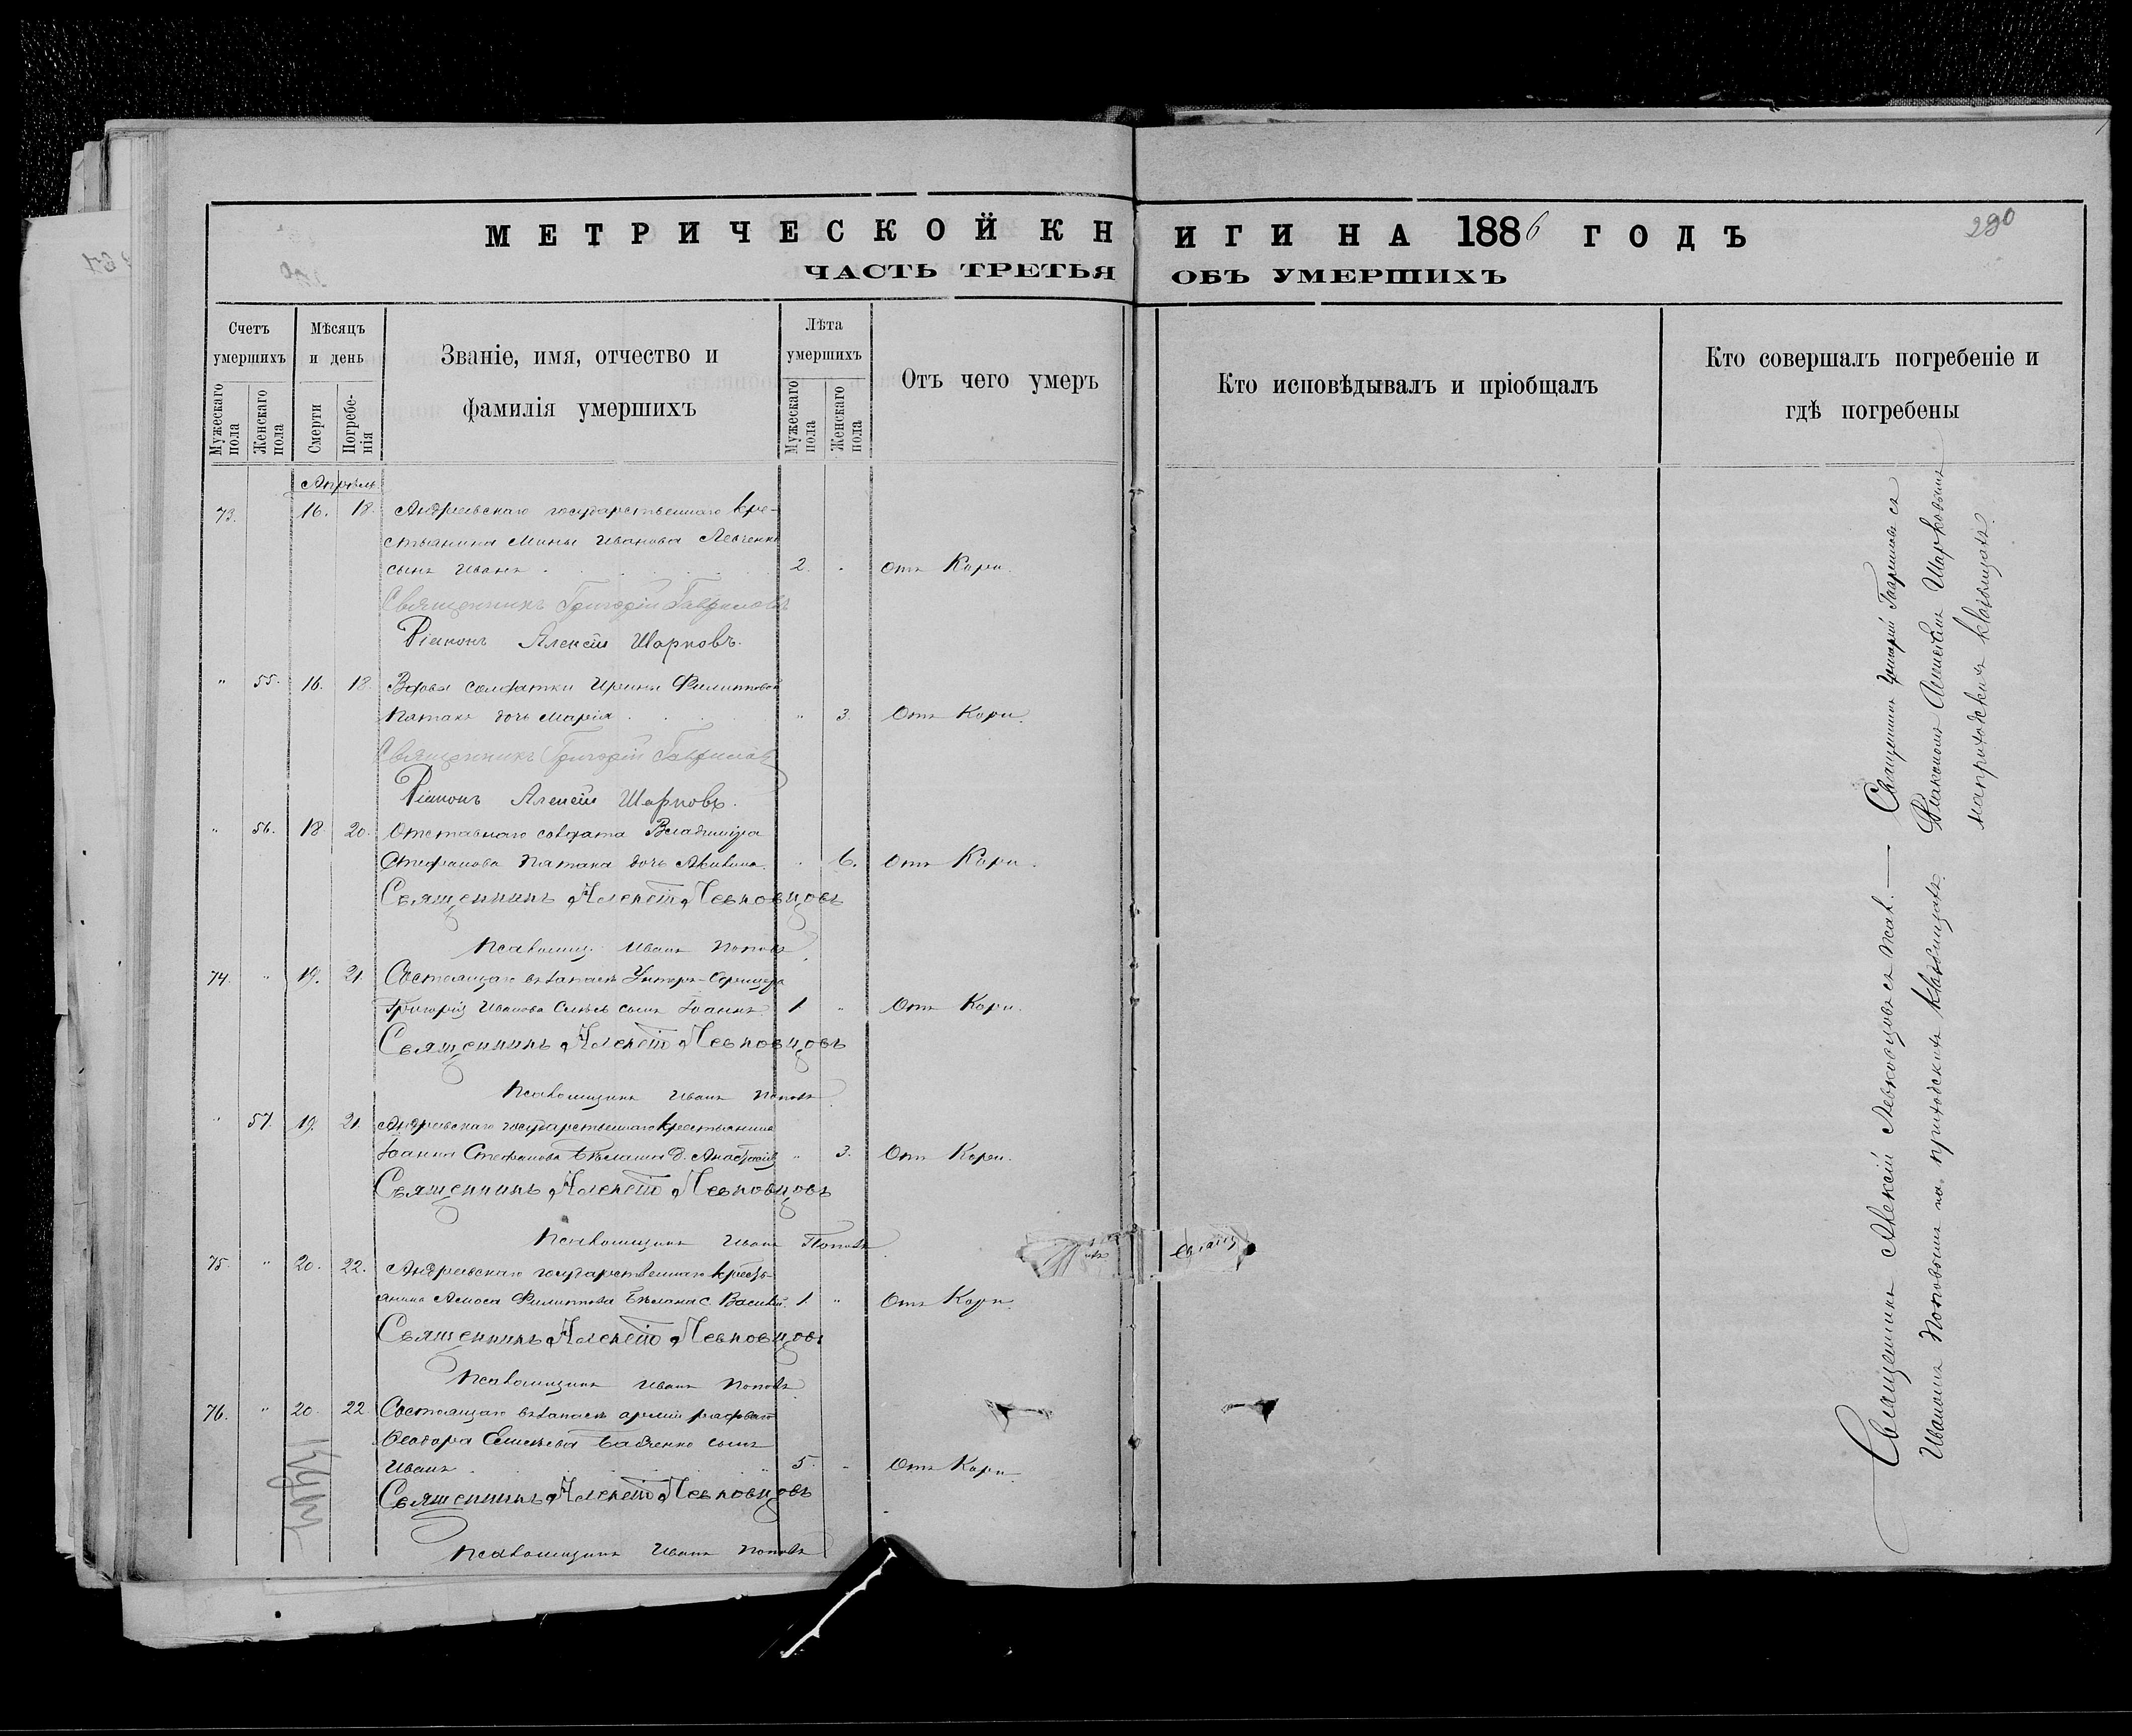 МЕТРИЧЕСКОЙ КНИГИ НА 1886 ГОДЪ
290
ЧАСТЬ ТРЕТЬЯ ОБЪ УМЕРШИХЪ
Счетъ умершихъ
Мѣсяцъ и день
Званіе, имя, отчество и фамилія умершихъ
Лѣта умершихъ
Отъ чего умеръ
Кто исповѣдывалъ и пріобщалъ
Кто совершалъ погребеніе и гдѣ погребены
Мужескаго пола
Женскаго пола
Смерти
Погребенія
Мужескаго пола
Женскаго пола
Апрѣль
73. 16. 18. Андреевскаго государственнаго кре-
стьянина Мины Иванова Левченка
сынъ Иванъ 2. Отъ Кори.
Священникъ Григорій Гавриловъ
Діаконъ Алексѣй Шарковъ.
" 55. 16. 18. Вдовы солдатки Ирины Филиповой
Патака дочь Марія " 3. Отъ Кори.
Священникъ Григорій Гавриловъ
Діаконъ Алексѣй Шарковъ.
" 56. 18 20. Отставнаго солдата Владиміра
Стефанова Патака дочь 6. Отъ Кори.
Священникъ Алексѣй Левковцовъ
Псаломщ. Иванъ Поповъ
74. " 19. 21 Состоящаго въ запасѣ Унтеръ-Офицера
Григорія Иванова сынъ Іоаннъ 1 " Отъ Кори.
Священникъ Алексѣй Левковцовъ
Псаломщикъ Иванъ Поповъ
" 57. 19. 21. Андреевскаго государственнаго крестьянина
Іоанна Стефанова Бѣлана д. Анастасія " 3. Отъ Кори.
Священникъ Алексѣй Левковцовъ
Псаломщикъ Иванъ Поповъ
75. " 20. 22. Андреевскаго государственнаго кресть-
янина Амоса Филиппова Бѣлана с. Василій. 1. " Отъ Кори.
Священникъ Алексѣй Левковцовъ
Псаломщикъ Иванъ Поповъ
76. " 20. 22. Состоящаго въ запасѣ арміи рядоваго
Ѳеодора Бабченко сынъ
Иванъ 5. Отъ Кори.
Священникъ Алексѣй Левковцовъ
Псаломщикъ Иванъ Поповъ
Священникъ Алексій Левковцовъ съ псал. —
Иваномъ Поповымъ на приходскомъ кладбищѣ.
Священникъ Григорій Гавриловъ съ
Діакономъ Алексѣемъ Шарковымъ
на приходскомъ кладбищѣ.